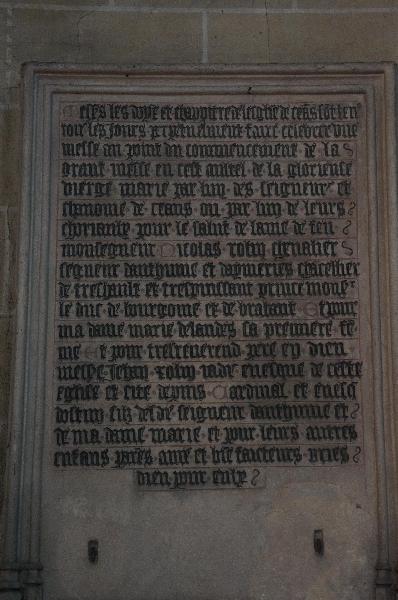 esßs les doyē et chappitre de leglise de ceās sōt ten⁹
touz les jours ppetuelment faire celebrer vne
messe au point du commencement de la
grant messe en cest autel de la glorieuse
vierge marie par lun des seigneurs et
chanoine de ceans ou par lun de leurs
choriaulx pour le salut de lame de feu
monseigneur nicolas rolin chevalier
seigneur dauthume et daymeries chācellier
de treshault et trespuissant prince monsr
le duc de bourgoine et de brabant Et pour
ma dame marie delandes sa premiere fe
me Et pour tresreverend pere en dieu
messe Jehan rolin iadis evesque de ceste
eglise et cite depuis Cardinal et evesq
dostun filz desdᶻ seigneur dauthume et
de ma dame marie et pour leurs autres
enfans parēs amis et biēfaicteurs pries
dieu pour eulx